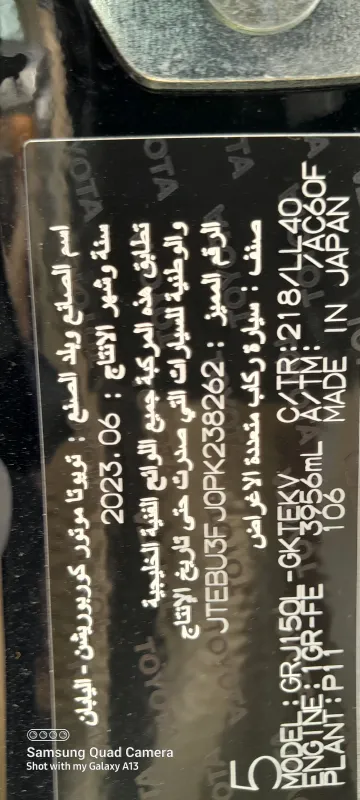 اسم الصانع وبلد الصنع : تويوتا موتور كوربوريشن - اليابان
سنة وشهر الإنتاج : 2023.06
تطابق هذه المركبة جميع اللوائح الفنية الخليجية
والوطنية للسيارات التي صدرت حتى تاريخ الإنتاج
الرقم المميز : JTEBU3FJ0PK238262
صنف : سيارة ركاب متعددة الاغراض
5
MODEL : GRJ150L-GKTEKV C/TR: 218/LL40
ENGINE: 1GR-FE 3956mL A/TM: /AC60F
PLANT: P11 106 MADE IN JAPAN
TOYOTA
Samsung Quad Camera
Shot with my Galaxy A13